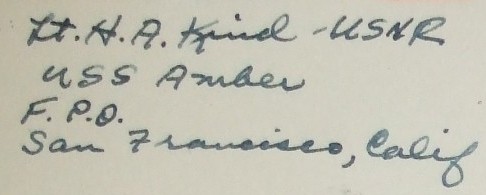 Lt. H. A. Kind - USNR
USS Amber
F. P. O.
San Francisco, Calif